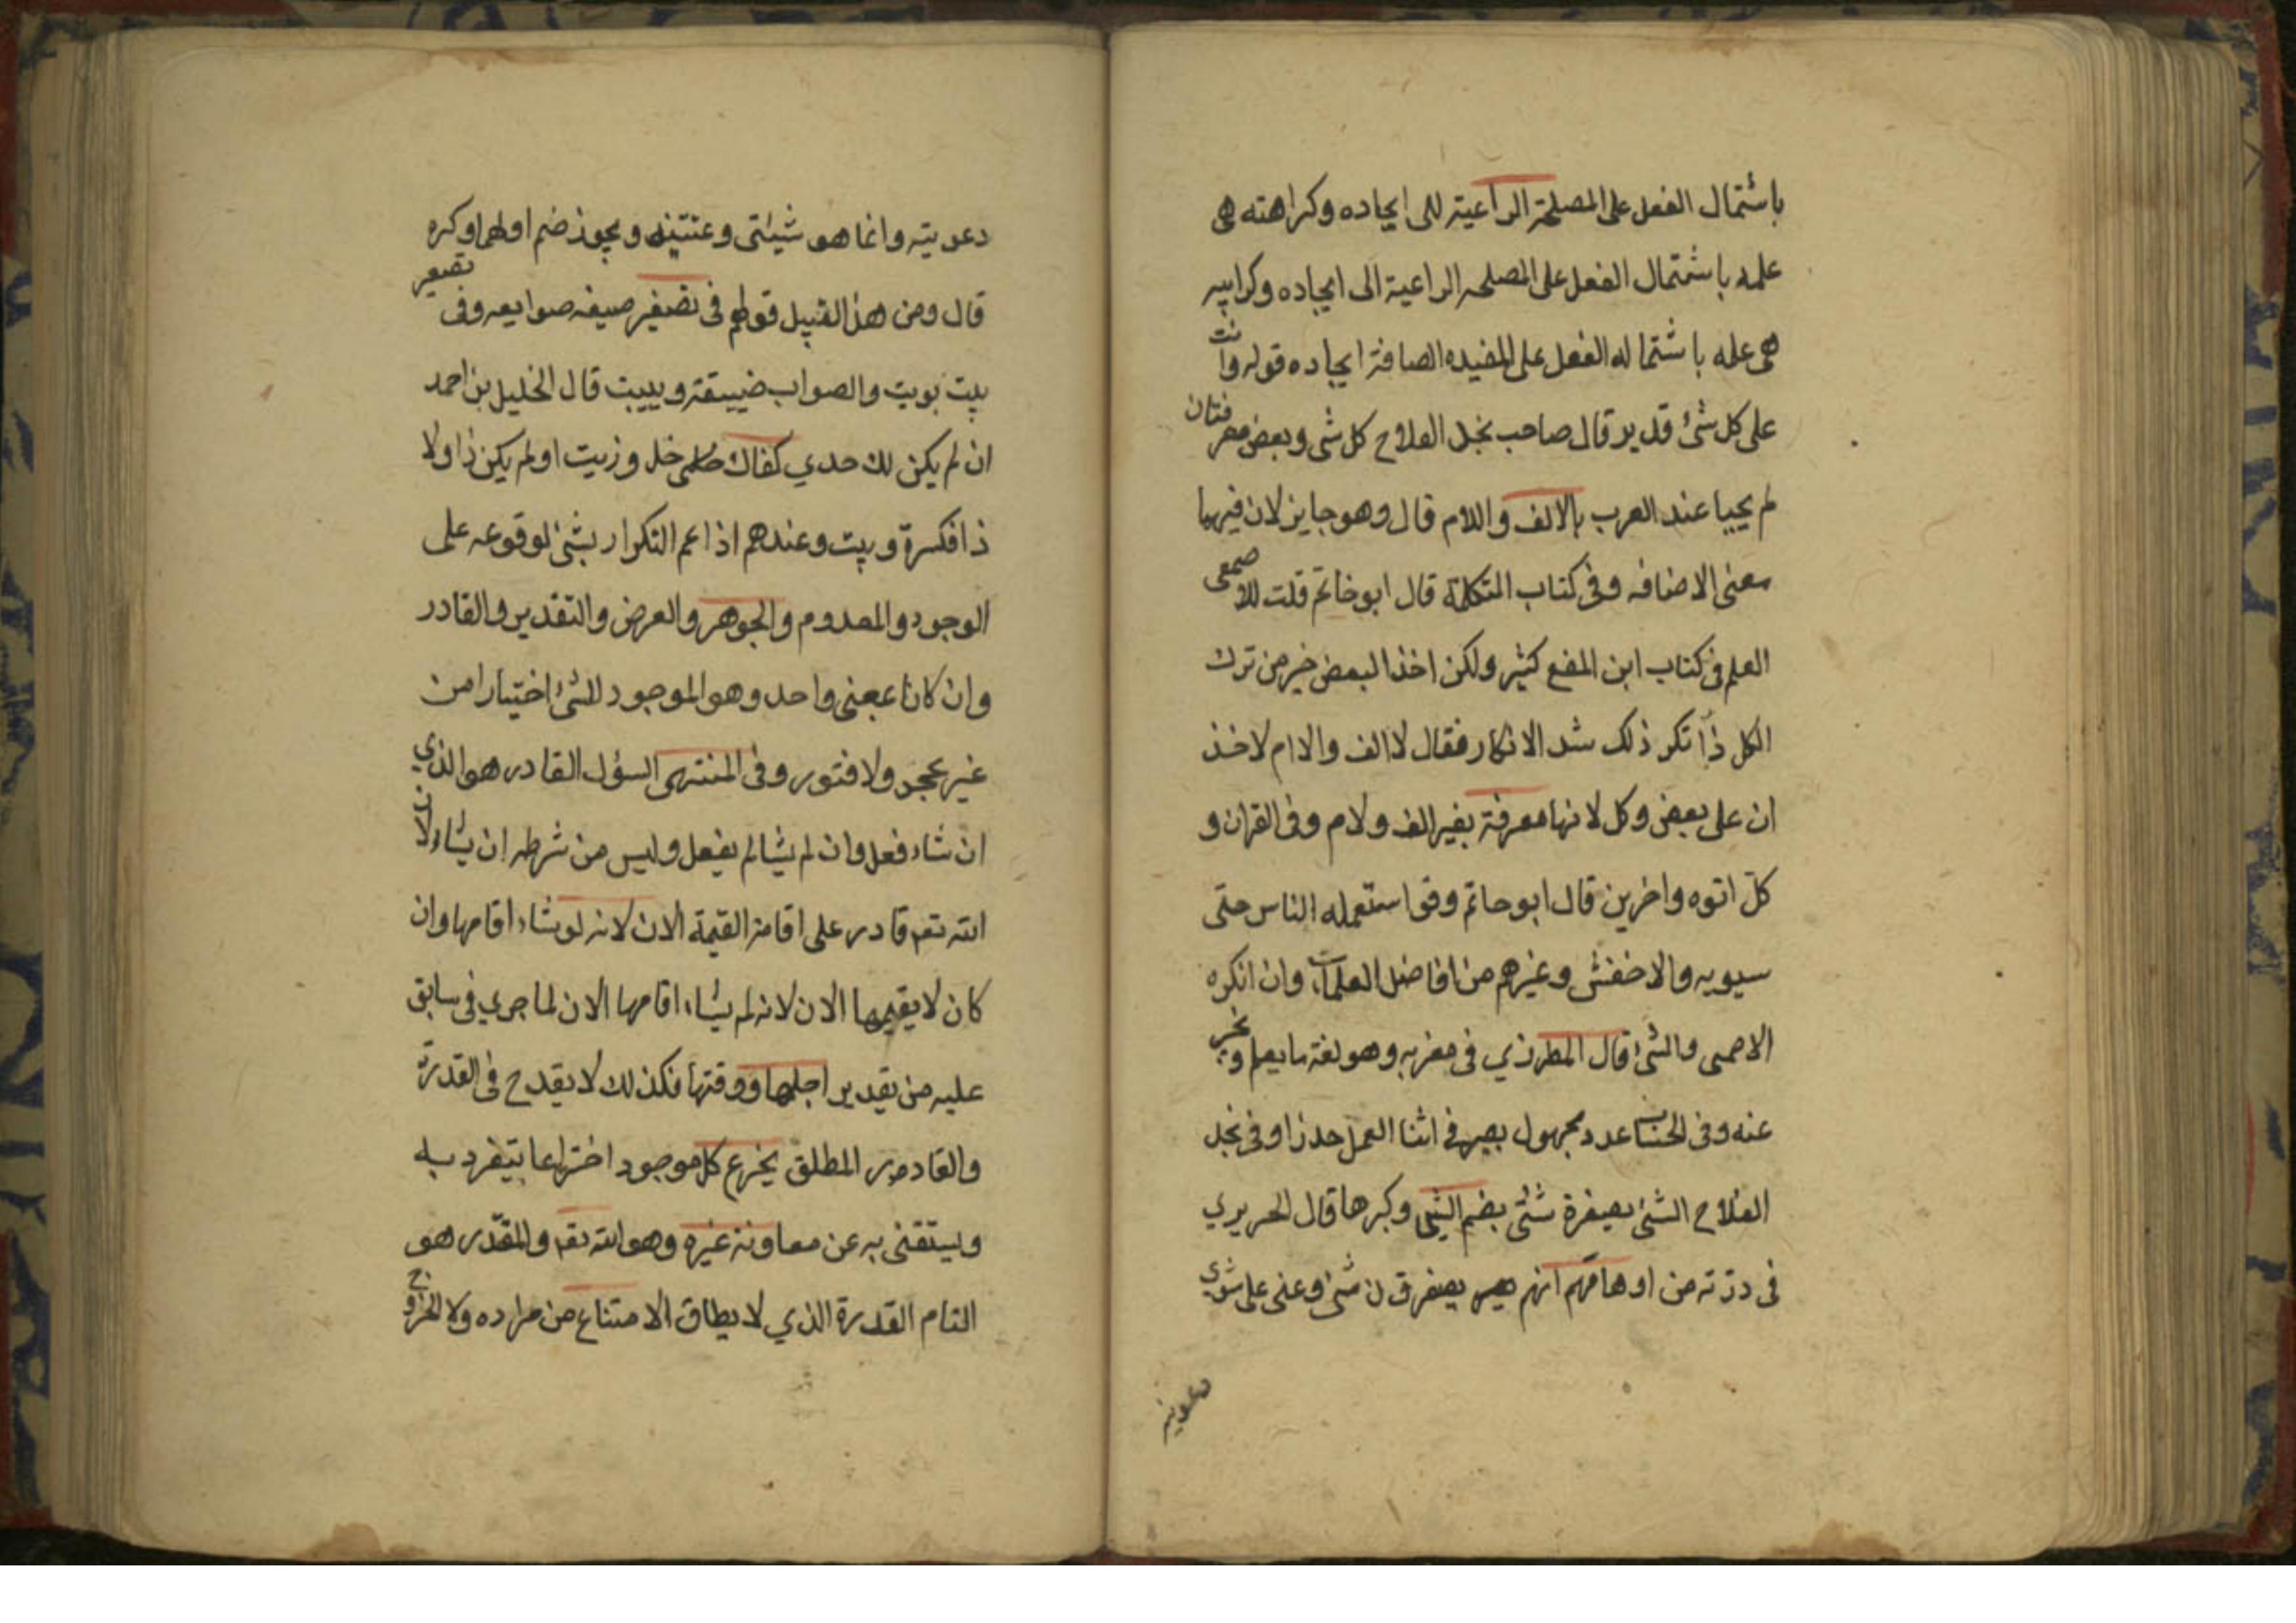 باشتمال الفعل على المصلحة الراعية للى ايجاده وكراهته هى
علمه باشتمال الفعل على المصلحه الراعية الى ايجاده وكراييه
هى علمه باشتماله الفعل على المفيده الصافة ايجاده قوله وانت
على كل شئ قدير قال صاحب نجد الفلاح كل شى وبعض معرفتان
لم يجيا عند العرب بالالف واللام قال وهو جايز لان فيهيا
معنى الاضافه وفى كتاب التكلمة قال ابو خاتم قلت للاصمعى
العلم فى كتاب ابن المقفع كثير ولكن اخذ البعض خير من ترك
الكل ذا نكر ذلك شد الانكار فقال لا الف والا ام لاخذ
ان على بعض وكل لانها معرفة بغير الف ولام وفى القران و
كل اتوه واخرين قال ابو حاتم وقوا ستعمله الناس حتى
سيويه والاخفش وغيرهم من افاضل العلمآت وان انكره
الاصمى والشئ قال المطرزي فى مغربه وهو لغة ما يعلم ويخبر
عنه وفى الحساب عدد مجهول يصير فى اثنا العمل حدزا وفى نجد
الفلاح الشئ بصيفرة شئى بضم الشى وكبرها قال الحريري
فى درته من اوهامهم انهم يصفرقون شئ وعنى على شوى
دعويته
دعويته وانما هو شيئتى وعنتينه ويجوز ضم اولهما وكره
قال ومن هذا القبيل قولهم فى تصغير صيفه صوايعه وفى تصغير
بيت بويت والصواب ضييقة وبييت قال الخليل بن احمد
ان لم يكن لك حدي كفاك خل وزيت او لم يكن ذا ولا
ذا فكسرة وبيت وعندهم اذا عم التكرار بشئ لوقوعه على
الوجود والمعدوم والجوهر والعرض والتقدير والقادر
وان كانا بمعنى واحد وهو الموجود للشئ اختيارا من
غير عجز ولا فتور وفى المنتهى السؤل القادر هو الذي
ان شاء فعل وان لم يشا لم يفعل وليس من شرطه ان يشاء لان
الله تعم قادر على اقامة القيمة الان لانه لو شاء اقامها وان
كان لا يقيمها الان لانه لم يشاء اقامها الان لما جري فى سابق
عليه من تقدير اجلها ووقتها فكذلك لا يقدح فى القدرة
والقادر المطلق يخرع كل موجود اختراعا يتفرد به
ويستغنى به عن معاونة غيره وهو الله تعم والمقدر هو
التام القدرة الذي لا يطاق الامتناع من مراده ولا الخروج